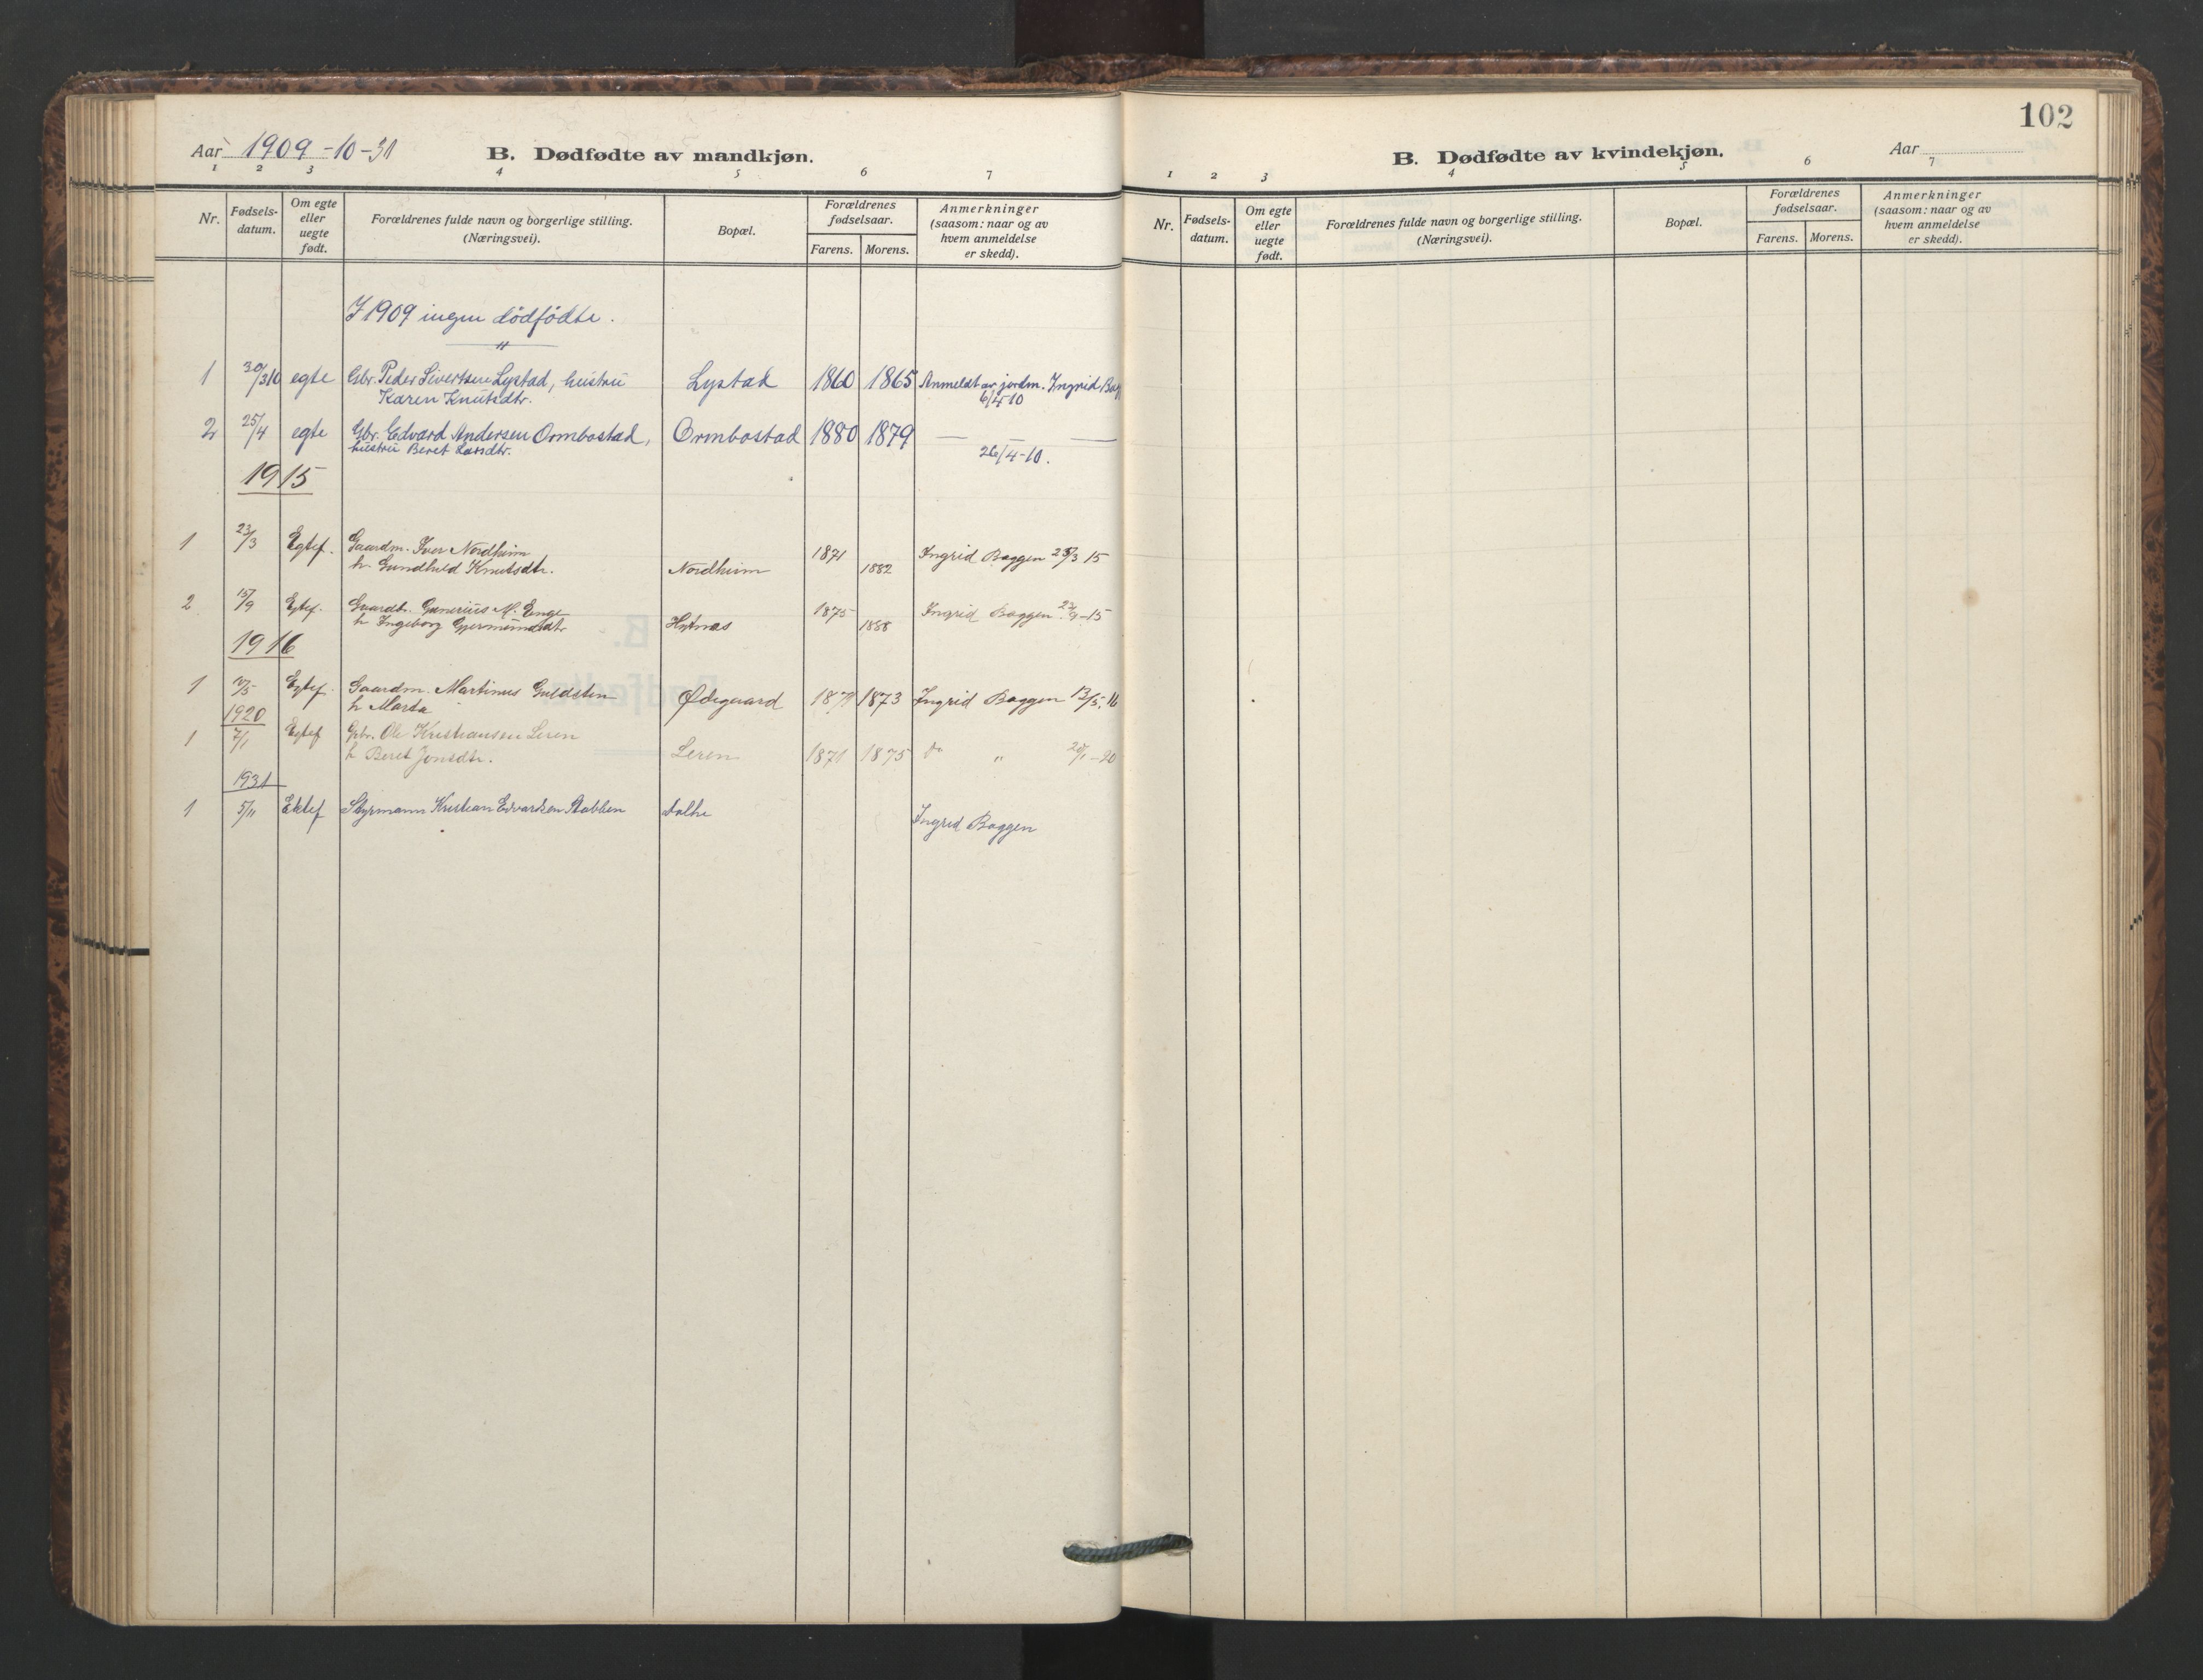 Aar 1909-10-31
B. Dødfødte av mandkjøn.
1 2 3 4 5 6 7
Nr. Fødsels-datum. Om egte eller uegte født. Forældrenes fulde navn og borgerlige stilling. (Næringsvei). Bopæl. Forældrenes fødselsaar. Farens. Morens. Anmerkninger (saasom: naar og av hvem anmeldelse er skedd).
I 1909 ingen dødfødte.
1 30/3 10 egte Gbr. Peder Sivertsen Lystad, hustru Lystad 1860 1865 Anmeldt av jordm. Ingrid Bag
Karen Knutsdtr. 6/4 10
2 25/4 egte Gbr. Edvard Andersen Ormbostad, Ormbostad 1880 1879 — — —
hustru Beret Larsdtr. 26/4-10.
1915
1 23/3 Egtef. Gaardm. Iver Nordheim 1871 Ingrid Baggen 15
h. Gundhild Knutsdtr. Nordheim 1882
2 15/9 Egtef. Gaardbr. Gunerius M. Enge 1875 Ingrid Baggen -15
h Ingeborg Hytnes 1888
1916
1 Egtef. Gaardm. Martinus Guldsten Ødegaard 1873 Ingrid Baggen 13/5. 16
h Marta
1920
1 7/1 Egtef Gbr. Ole Kristiansen Leren
h Beret Jonsdtr. Leren 1871 1875 do " 20/1-20
1931
1 5/11 Ektef Styrmann Kristian Edvardsen Stabben Ingrid Baggen
102
B. Dødfødte av kvindekjøn.
Aar
1 2 3 4 5 6 7
Nr. Fødsels-datum. Om egte eller uegte født. Forældrenes fulde navn og borgerlige stilling. (Næringsvei). Bopæl. Forældrenes fødselsaar. Farens. Morens. Anmerkninger (saasom: naar og av hvem anmeldelse er skedd).